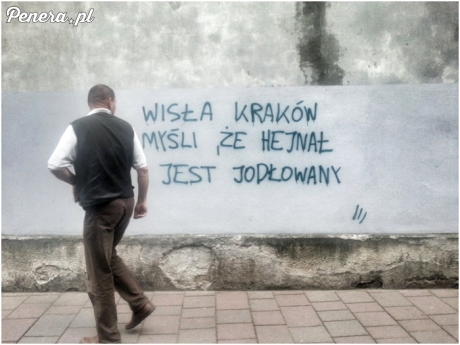 Penera.pl
WISŁA KRAKÓW
MYŚLI, ŻE HEJNAŁ
JEST JODŁOWANY